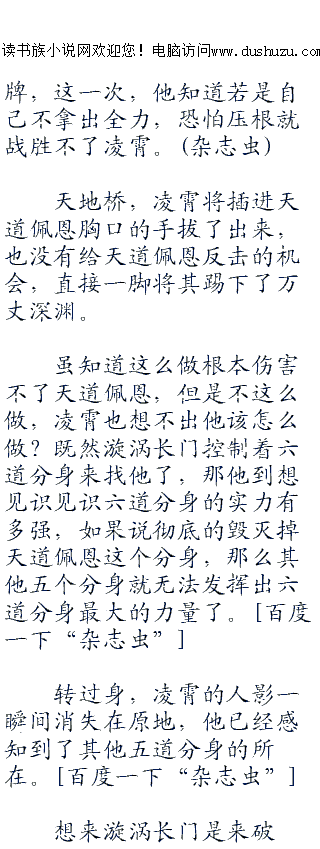 读书族小说网欢迎您！电脑访问www.dushuzu.com
牌，这一次，他知道若是自
己不拿出全力，恐怕压根就
战胜不了凌霄。(杂志虫)
天地桥，凌霄将插进天
道佩恩胸口的手拔了出来，
也没有给天道佩恩反击的机
会，直接一脚将其踢下了万
丈深渊。
虽知道这么做根本伤害
不了天道佩恩，但是不这么
做，凌霄也想不出他该怎么
做？既然漩涡长门控制着六
道分身来找他了，那他到想
见识见识六道分身的实力有
多强，如果说彻底的毁灭掉
天道佩恩这个分身，那么其
他五个分身就无法发挥出六
道分身最大的力量了。[百度
一下“杂志虫”]
转过身，凌霄的人影一
瞬间消失在原地，他已经感
知到了其他五道分身的所
在。[百度一下“杂志虫”]
想来漩涡长门是来破